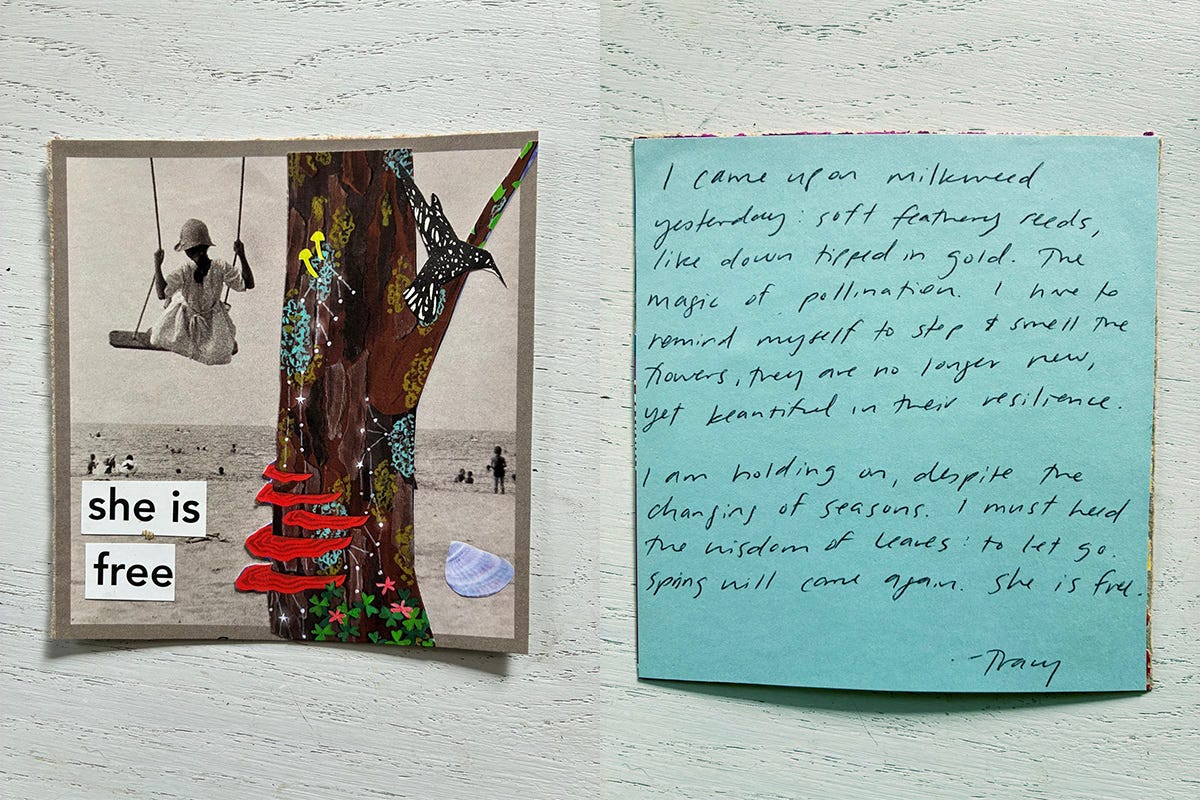 she is
free
I came upon milkweed
yesterday: soft feathery seeds,
like down tipped in gold. The
magic of pollination. I have to
remind myself to stop & smell the
flowers, they are no longer new,
yet beautiful in their resilience.
I am holding on, despite the
changing of seasons. I must heed
the wisdom of leaves: to let go.
Spring will come again. She is free.
-Tracy